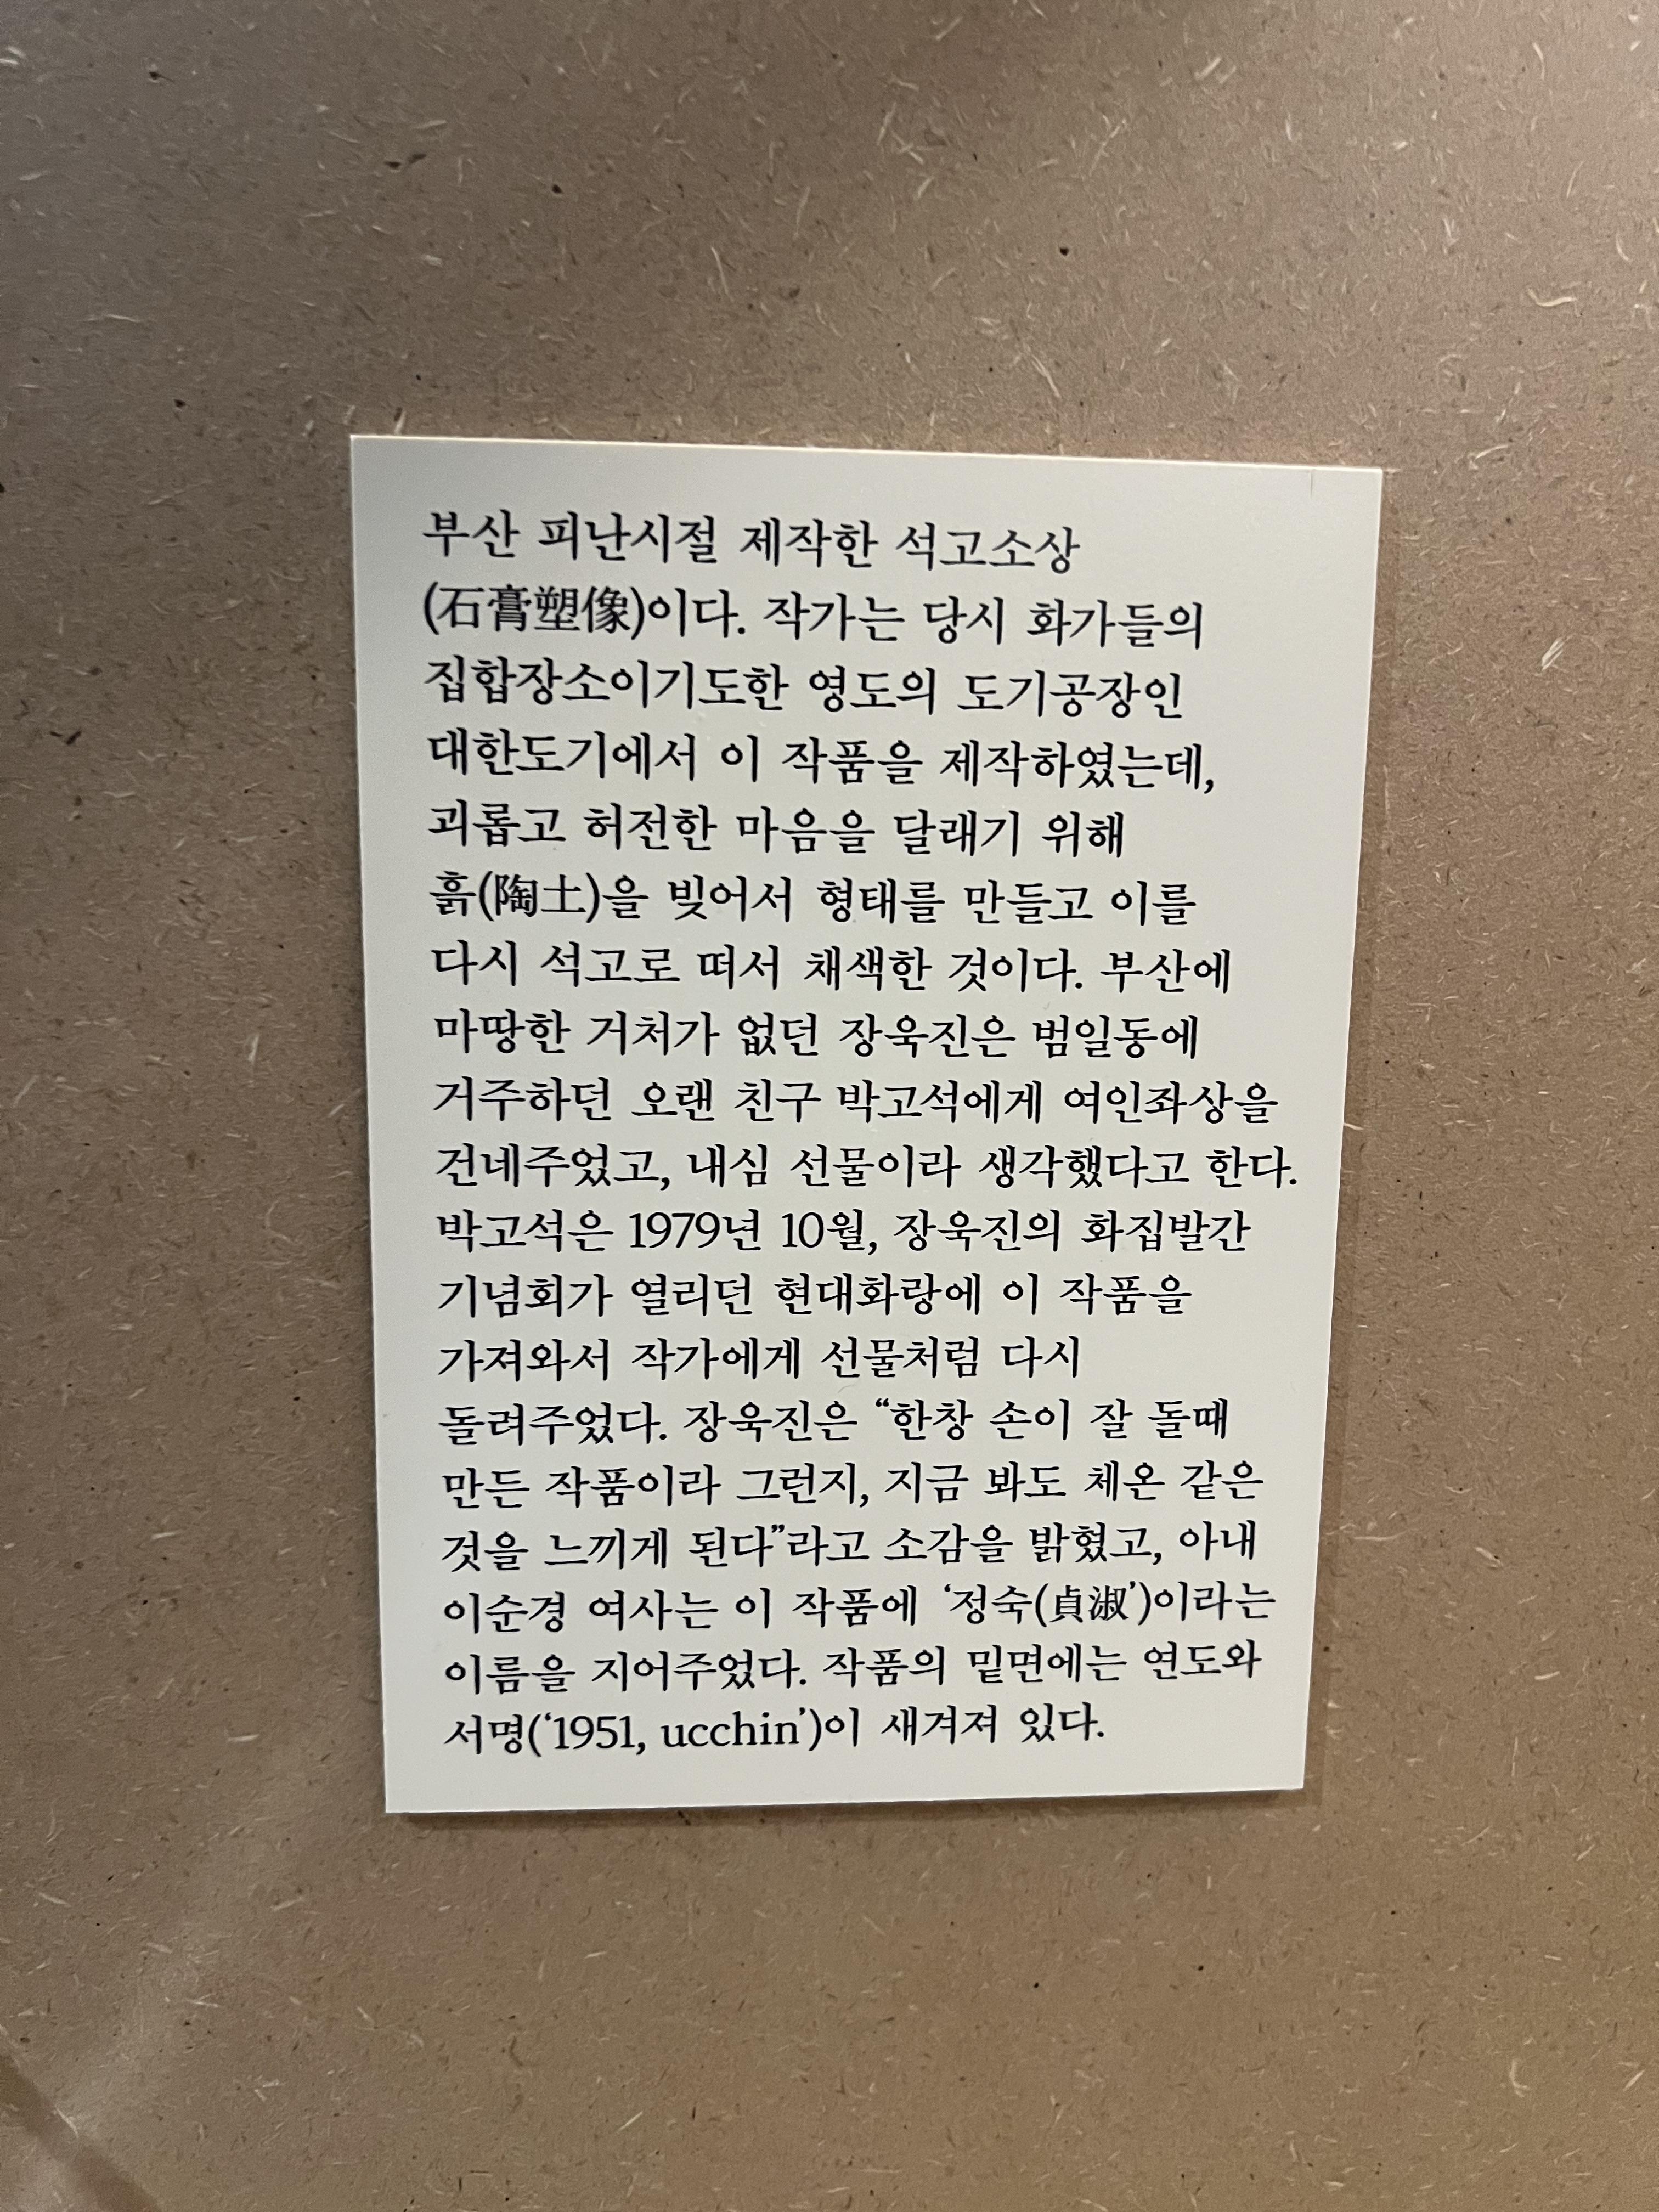 부산 피난시절 제작한 석고소상
(石膏塑像)이다. 작가는 당시 화가들의
집합장소이기도한 영도의 도기공장인
대한도기에서 이 작품을 제작하였는데,
괴롭고 허전한 마음을 달래기 위해
흙(陶土)을 빚어서 형태를 만들고 이를
다시 석고로 떠서 채색한 것이다. 부산에
마땅한 거처가 없던 장욱진은 범일동에
거주하던 오랜 친구 박고석에게 여인좌상을
건네주었고, 내심 선물이라 생각했다고 한다.
박고석은 1979년 10월, 장욱진의 화집발간
기념회가 열리던 현대화랑에 이 작품을
가져와서 작가에게 선물처럼 다시
돌려주었다. 장욱진은 “한창 손이 잘 돌때
만든 작품이라 그런지, 지금 봐도 체온 같은
것을 느끼게 된다”라고 소감을 밝혔고, 아내
이순경 여사는 이 작품에 ‘정숙(貞淑’)이라는
이름을 지어주었다. 작품의 밑면에는 연도와
서명(‘1951, ucchin’)이 새겨져 있다.